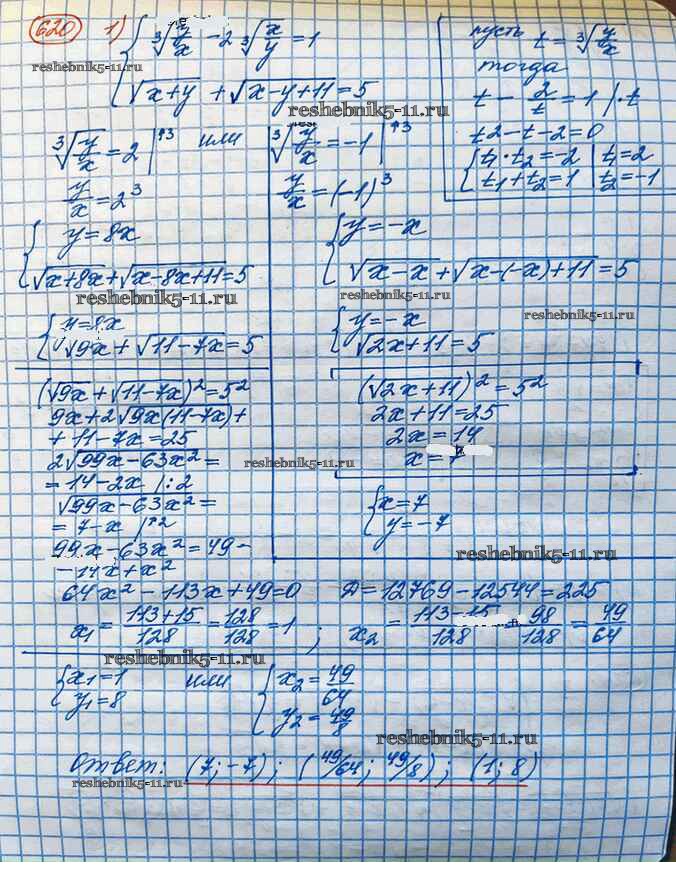 620 1) { ∛(y/x) - 2 ∛(x/y) = 1
√(x+y) + √(x-y+11) = 5
пусть t = ∛(y/x)
тогда
t - 2/t = 1 | ·t
t² - t - 2 = 0
{ t₁·t₂ = -2 | t₁ = 2
t₁+t₂ = 1 | t₂ = -1
reshebnik5-11.ru
reshebnik5-11.ru
∛(y/x) = 2 |↑3 или ∛(y/x) = -1 |↑3
y/x = 2³
y/x = (-1)³
{ y = 8x
√(x+8x) + √(x-8x+11) = 5
{ y = -x
√(x-x) + √(x-(-x)+11) = 5
reshebnik5-11.ru
reshebnik5-11.ru
{ y = 8x
√9x + √(11-7x) = 5
{ y = -x
√(2x+11) = 5
reshebnik5-11.ru
reshebnik5-11.ru
(√9x + √(11-7x))² = 5²
9x + 2√(9x(11-7x)) +
+ 11 - 7x = 25
2√(99x - 63x²) =
= 14 - 2x |:2
√(99x - 63x²) =
= 7 - x |↑2
99x - 63x² = 49 -
- 14x + x²
(√(2x+11))² = 5²
2x + 11 = 25
2x = 14
x = 7
reshebnik5-11.ru
{ x = 7
y = -7
reshebnik5-11.ru
64x² - 113x + 49 = 0 Д = 12769 - 12544 = 225
x₁ = (113+15)/128 = 128/128 = 1 ; x₂ = (113-15)/128 = 98/128 = 49/64
reshebnik5-11.ru
{ x₁ = 1
y₁ = 8
или
{ x₂ = 49/64
y₂ = 49/8
reshebnik5-11.ru
Ответ: (7; -7); (49/64; 49/8); (1; 8)
reshebnik5-11.ru
reshebnik5-11.ru